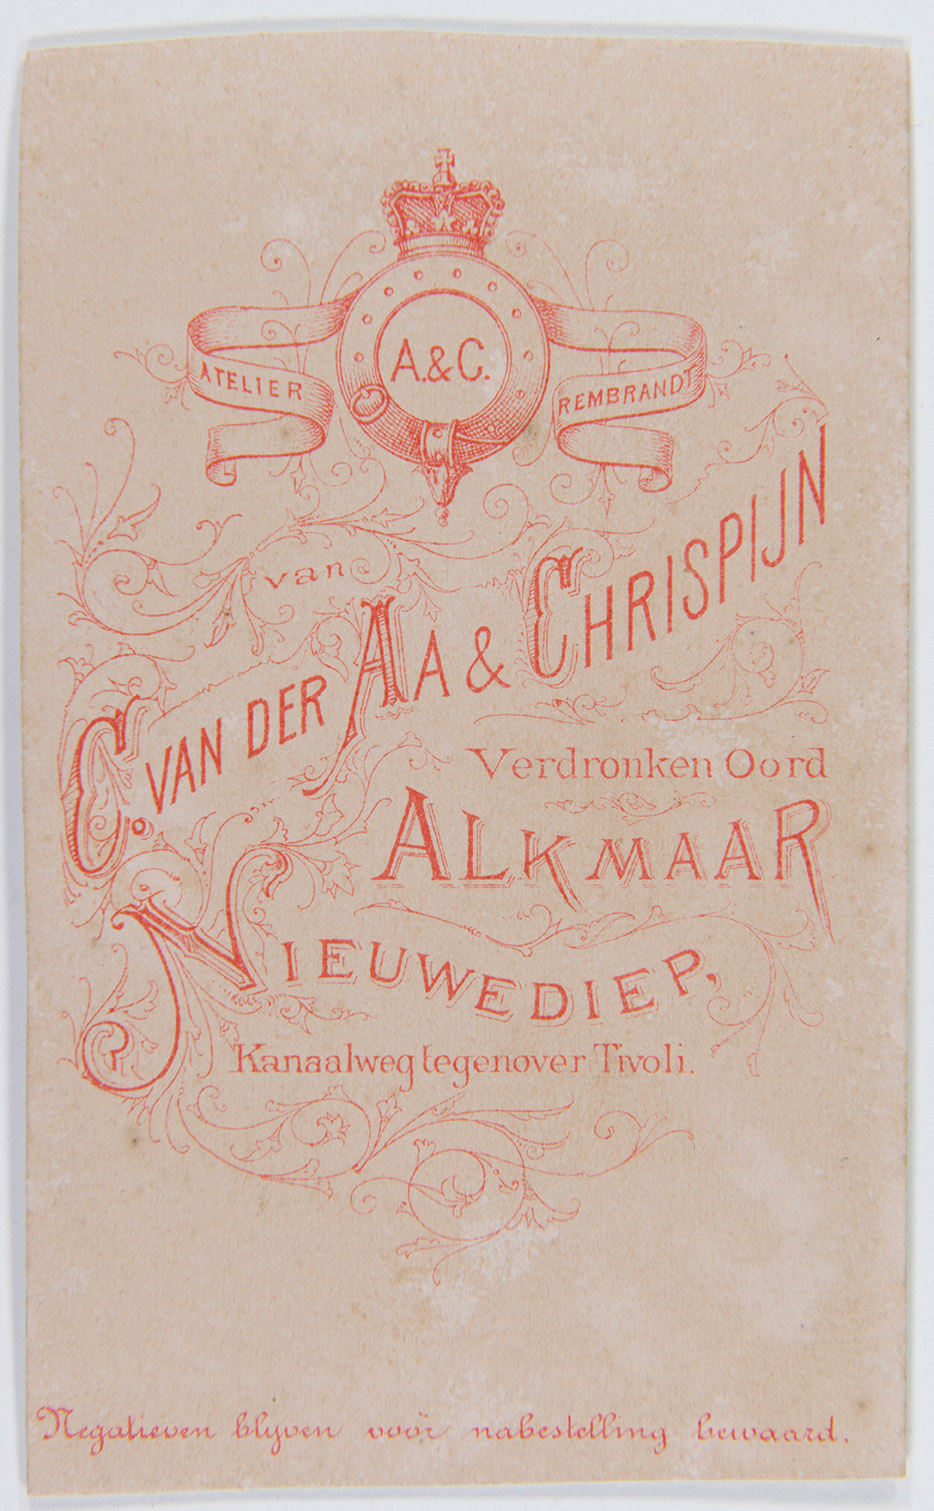 A.&C.
ATELIER REMBRANDT
van
C. VAN DER AA & CHRISPIJN
Verdronken Oord
ALKMAAR
NIEUWEDIEP,
Kanaalweg tegenover Tivoli.
Negatieven blijven voór nabestelling bewaard.